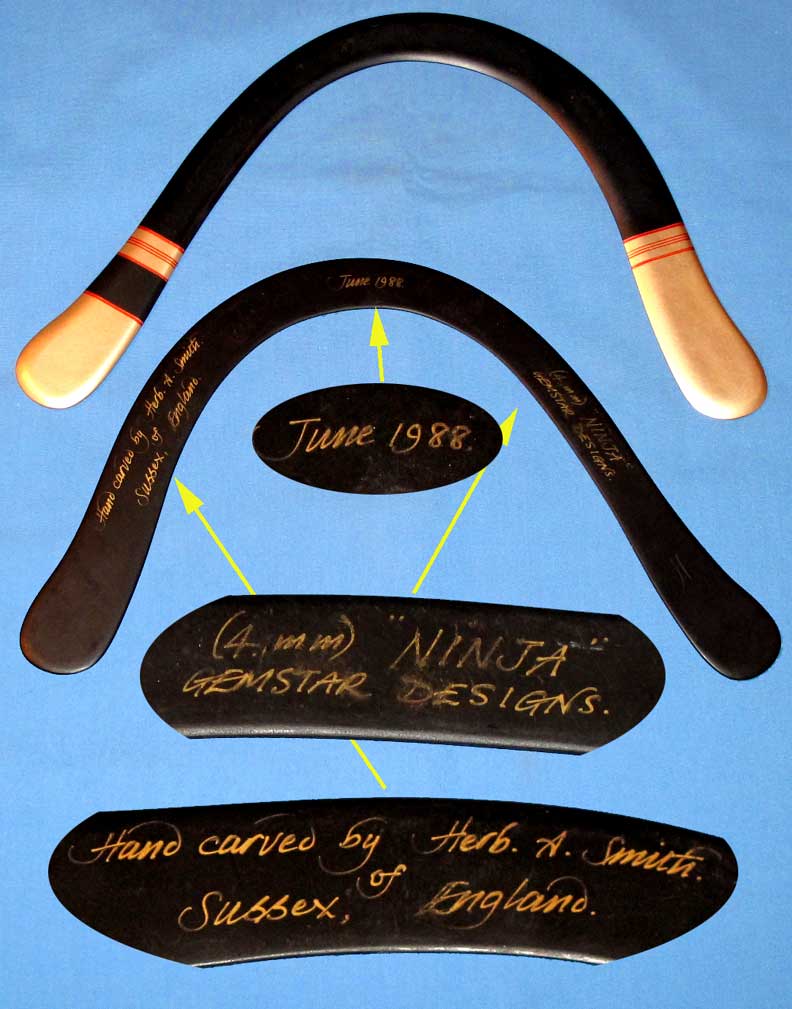 June 1988.
Hand carved by Herb. A. Smith.
Sussex, of England.
(4.mm) "NINJA"
GEMSTAR DESIGNS.
June 1988.
(4.mm) "NINJA"
GEMSTAR DESIGNS.
Hand carved by Herb. A. Smith.
of
Sussex, England.